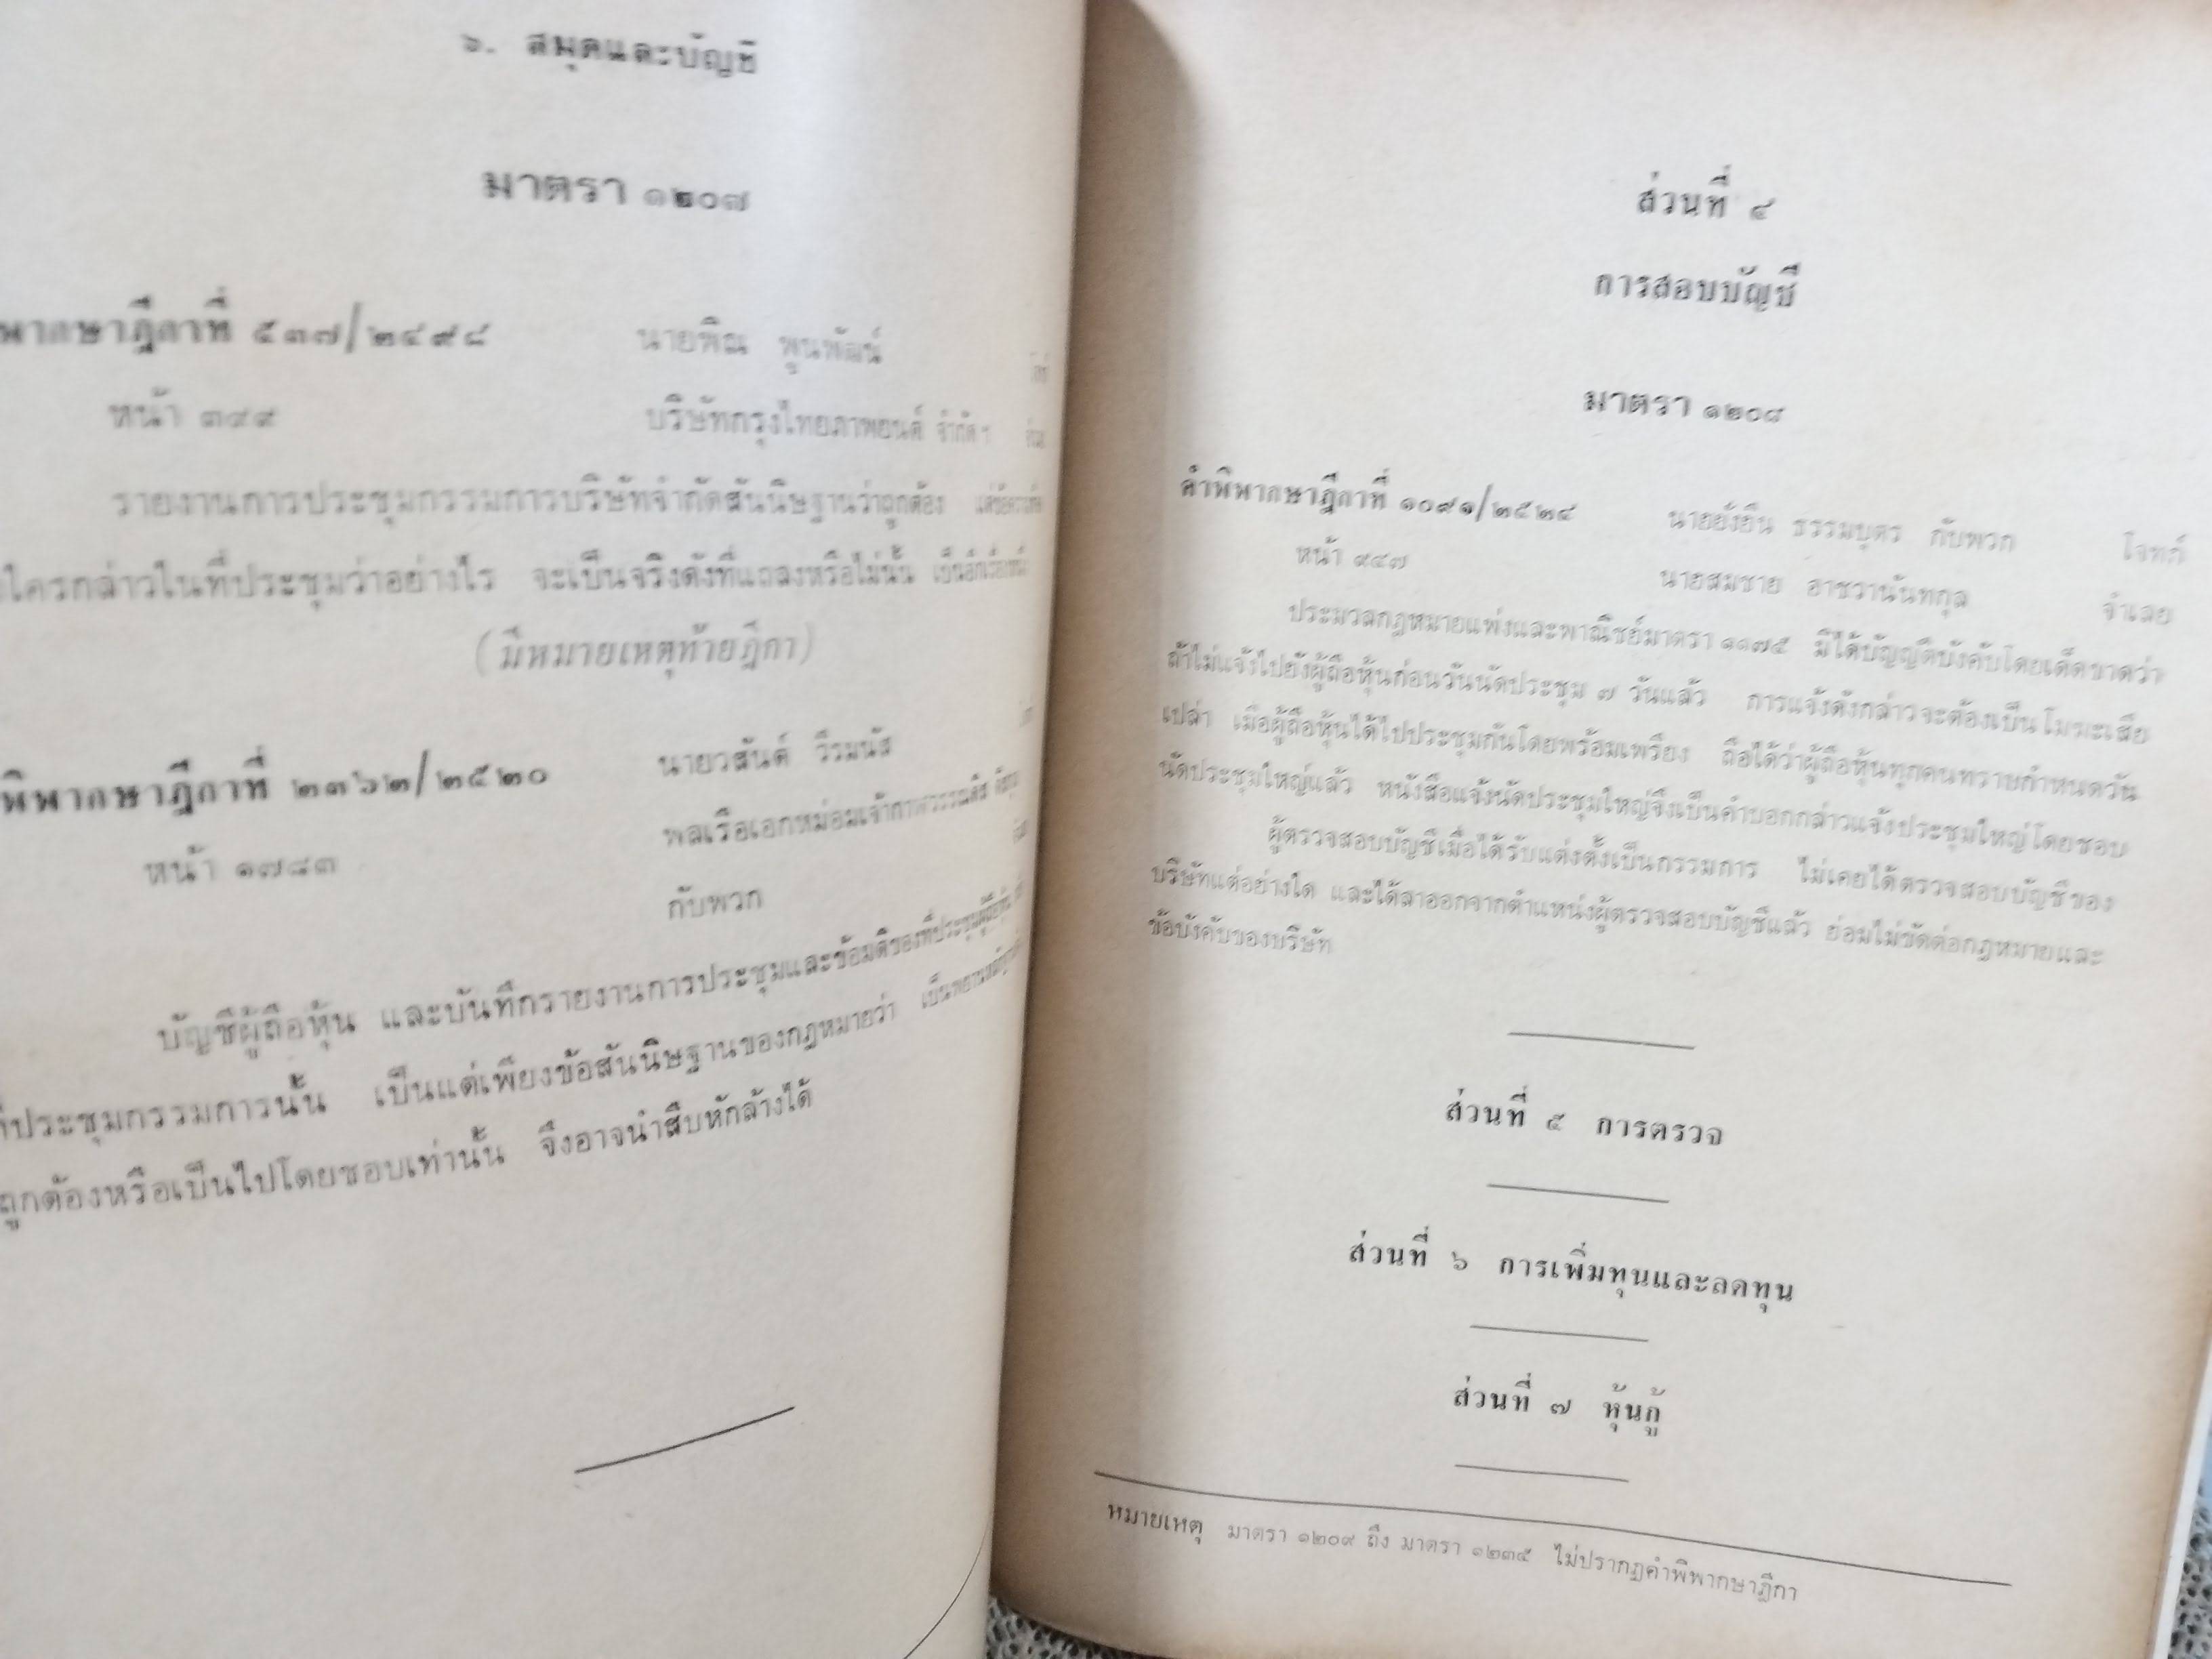 ๖. สมุดและบัญชี
มาตรา ๑๒๐๗
พากษาฎีกาที่ ๕๓๗/๒๔๙๘ นายพิณ พูนพัฒน์
หน้า ๓๙๙ บริษัทกรุงไทยภาพยนต์ จำกัดฯ
รายงานการประชุมกรรมการบริษัทจำกัดสันนิษฐานว่าถูกต้อง
ใครกล่าวในที่ประชุมว่าอย่างไร จะเป็นจริงดังที่แถลงหรือไม่นั้น
(มีหมายเหตุท้ายฎีกา)
พิพากษาฎีกาที่ ๒๓๖๒/๒๕๒๐ นายวสันต์ วีรมนัส
พลเรือเอกหม่อมเจ้ากาฬวรรณดิศ
หน้า ๑๗๘๓
กับพวก
บัญชีผู้ถือหุ้น และบันทึกรายงานการประชุมและข้อมติของที่ประชุมผู้ถือหุ้น
ที่ประชุมกรรมการนั้น เป็นแต่เพียงข้อสันนิษฐานของกฎหมายว่า เป็นพยานหลักฐาน
ถูกต้องหรือเป็นไปโดยชอบเท่านั้น จึงอาจนำสืบหักล้างได้
ส่วนที่ ๔
การสอบบัญชี
มาตรา ๑๒๐๘
คำพิพากษาฎีกาที่ ๑๐๙๑/๒๕๒๔ นายยังยืน ธรรมบุตร กับพวก โจทก์
หน้า ๙๔๗ นายสมชาย อาชวานันทกุล จำเลย
ประมวลกฎหมายแพ่งและพาณิชย์มาตรา ๑๑๗๕ มิได้บัญญัติบังคับโดยเด็ดขาดว่า
ถ้าไม่แจ้งไปยังผู้ถือหุ้นก่อนวันนัดประชุม ๗ วันแล้ว การแจ้งดังกล่าวจะต้องเป็นโมฆะเสีย
เปล่า เมื่อผู้ถือหุ้นได้ไปประชุมกันโดยพร้อมเพรียง ถือได้ว่าผู้ถือหุ้นทุกคนทราบกำหนดวัน
นัดประชุมใหญ่แล้ว หนังสือแจ้งนัดประชุมใหญ่จึงเป็นคำบอกกล่าวแจ้งประชุมใหญ่โดยชอบ
ผู้ตรวจสอบบัญชีเมื่อได้รับแต่งตั้งเป็นกรรมการ ไม่เคยได้ตรวจสอบบัญชีของ
บริษัทแต่อย่างใด และได้ลาออกจากตำแหน่งผู้ตรวจสอบบัญชีแล้ว ย่อมไม่ขัดต่อกฎหมายและ
ข้อบังคับของบริษัท
ส่วนที่ ๕ การตรวจ
ส่วนที่ ๖ การเพิ่มทุนและลดทุน
ส่วนที่ ๗ หุ้นกู้
หมายเหตุ มาตรา ๑๒๐๙ ถึง มาตรา ๑๒๓๕ ไม่ปรากฏคำพิพากษาฎีกา